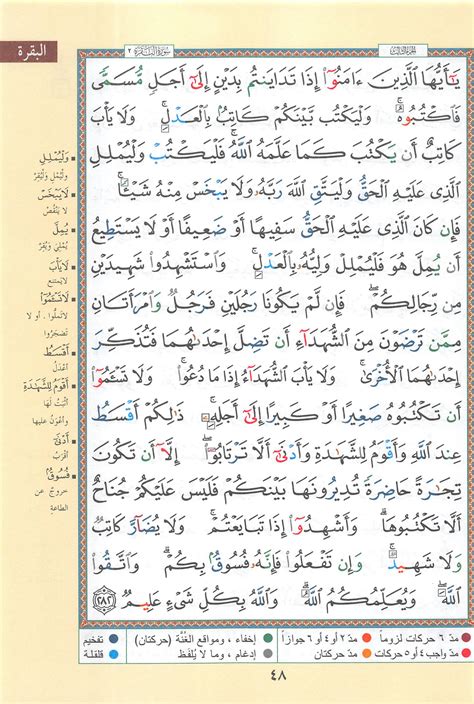 البقرة
سورة البقرة ٢
الجزء الثالث
يَٰٓأَيُّهَا ٱلَّذِينَ ءَامَنُوٓا۟ إِذَا تَدَايَنتُم بِدَيْنٍ إِلَىٰٓ أَجَلٍ مُّسَمًّى
فَٱكْتُبُوهُ ۚ وَلْيَكْتُب بَّيْنَكُمْ كَاتِبٌۢ بِٱلْعَدْلِ ۚ وَلَا يَأْبَ
كَاتِبٌ أَن يَكْتُبَ كَمَا عَلَّمَهُ ٱللَّهُ ۚ فَلْيَكْتُبْ وَلْيُمْلِلِ
ٱلَّذِى عَلَيْهِ ٱلْحَقُّ وَلْيَتَّقِ ٱللَّهَ رَبَّهُۥ وَلَا يَبْخَسْ مِنْهُ شَيْـًٔا ۚ
فَإِن كَانَ ٱلَّذِى عَلَيْهِ ٱلْحَقُّ سَفِيهًا أَوْ ضَعِيفًا أَوْ لَا يَسْتَطِيعُ
أَن يُمِلَّ هُوَ فَلْيُمْلِلْ وَلِيُّهُۥ بِٱلْعَدْلِ ۚ وَٱسْتَشْهِدُوا۟ شَهِيدَيْنِ
مِن رِّجَالِكُمْ ۖ فَإِن لَّمْ يَكُونَا رَجُلَيْنِ فَرَجُلٌ وَٱمْرَأَتَانِ
مِمَّن تَرْضَوْنَ مِنَ ٱلشُّهَدَآءِ أَن تَضِلَّ إِحْدَىٰهُمَا فَتُذَكِّرَ
إِحْدَىٰهُمَا ٱلْأُخْرَىٰ ۚ وَلَا يَأْبَ ٱلشُّهَدَآءُ إِذَا مَا دُعُوا۟ ۚ وَلَا تَسْـَٔمُوٓا۟
أَن تَكْتُبُوهُ صَغِيرًا أَوْ كَبِيرًا إِلَىٰٓ أَجَلِهِۦ ۚ ذَٰلِكُمْ أَقْسَطُ
عِندَ ٱللَّهِ وَأَقْوَمُ لِلشَّهَٰدَةِ وَأَدْنَىٰٓ أَلَّا تَرْتَابُوٓا۟ ۖ إِلَّآ أَن تَكُونَ
تِجَٰرَةً حَاضِرَةً تُدِيرُونَهَا بَيْنَكُمْ فَلَيْسَ عَلَيْكُمْ جُنَاحٌ
أَلَّا تَكْتُبُوهَا ۗ وَأَشْهِدُوٓا۟ إِذَا تَبَايَعْتُمْ ۚ وَلَا يُضَآرَّ كَاتِبٌ
وَلَا شَهِيدٌ ۚ وَإِن تَفْعَلُوا۟ فَإِنَّهُۥ فُسُوقٌۢ بِكُمْ ۗ وَٱتَّقُوا۟
ٱللَّهَ ۖ وَيُعَلِّمُكُمُ ٱللَّهُ ۗ وَٱللَّهُ بِكُلِّ شَىْءٍ عَلِيمٌ ٢٨٢
وَلْيُمْلِلِ
وَلْيُمْلِ وَلْيُقِرّ
لَا يَبْخَسْ
لا يَنْقُصْ
يُمِلَّ
يُمْلِيَ وَيُقِرّ
لَا يَأْبَ
لا يمتنع
لَا تَسْـَٔمُوٓا۟
لا تملّوا . أو لا
تضجروا
أَقْسَطُ
أعْدَلُ
أَقْوَمُ لِلشَّهَٰدَةِ
أثْبَتُ لَهَا
وأعْوَنُ عليها
أَدْنَىٰٓ
أقْرَبُ
فُسُوقٌ
خروجٌ عن
الطاعةِ
مدّ ٦ حركات لزوماً
مدّ ٢ أو ٤ أو ٦ جوازاً
إخفاء ، ومواقع الغُنَّة (حركتان)
تفخيم
مدّ واجب ٤ أو ٥ حركات
مدّ حركتان
إدغام ، وما لا يُلفَظ
قلقلة
٤٨